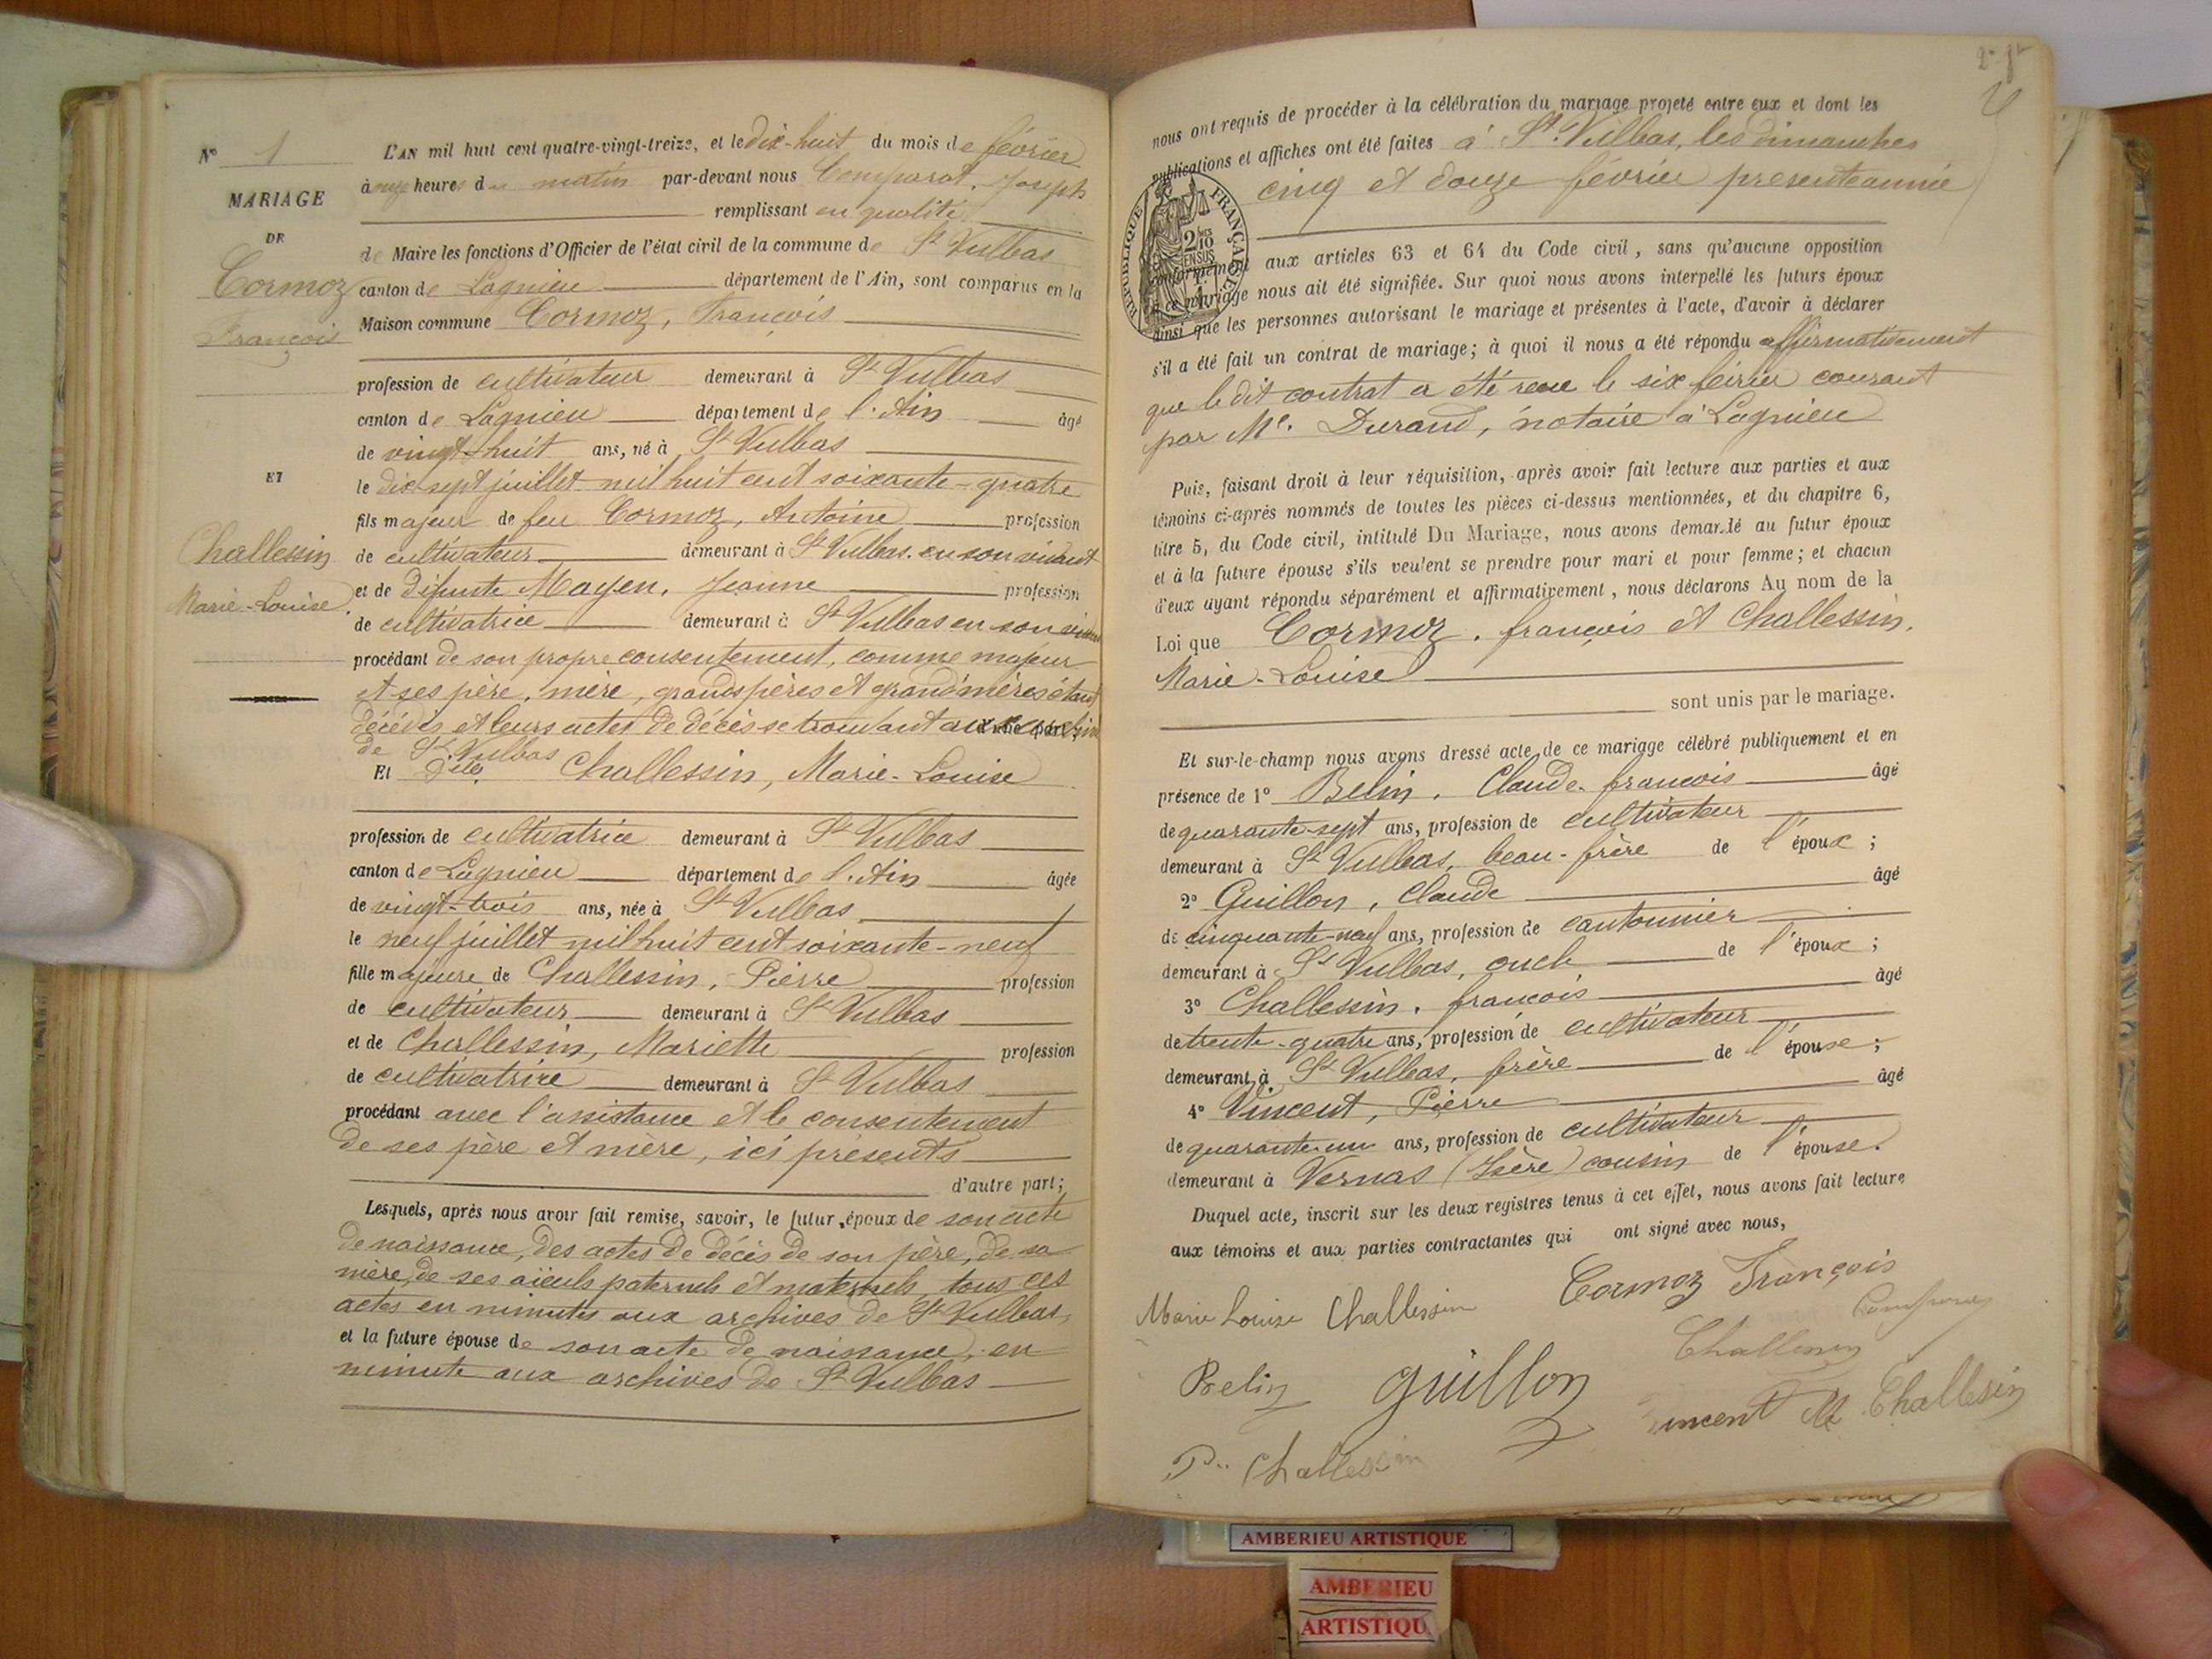 N° 1
MARIAGE
DE
Cormoz
François
ET
Challessin
Marie-Louise
L'AN mil huit cent quatre-vingt-treize, et le dix-huit du mois de février
à onze heures du matin par-devant nous Comparat, Joseph
remplissant en qualité
de Maire les fonctions d'Officier de l'état civil de la commune de St Vulbas
canton de Lagnieu département de l'Ain, sont comparus en la
Maison commune Cormoz, François
profession de cultivateur demeurant à St Vulbas
canton de Lagnieu département de l'Ain âgé
de vingt-huit ans, né à St Vulbas
le dix-sept juillet mil huit cent soixante-quatre
fils majeur de feu Cormoz, Antoine profession
de cultivateur demeurant à St Vulbas en son vivant
et de défunte Mayen, Jeanne profession
de cultivatrice demeurant à St Vulbas en son vivant
procédant de son propre consentement, comme majeur
et ses père, mère, grands pères et grand'mères étant
décédés et leurs actes de décès se trouvant aux archives
de St Vulbas
Et Dlle Challessin, Marie-Louise
profession de cultivatrice demeurant à St Vulbas
canton de Lagnieu département de l'Ain âgée
de vingt-trois ans, née à St Vulbas
le neuf juillet mil huit cent soixante-neuf
fille majeure de Challessin, Pierre profession
de cultivateur demeurant à St Vulbas
et de Challessin, Mariette profession
de cultivatrice demeurant à St Vulbas
procédant avec l'assistance et le consentement
de ses père et mère, ici présents
d'autre part;
Lesquels, après nous avoir fait remise, savoir, le futur époux de son acte
de naissance, des actes de décès de son père, de sa
mère, de ses aïeuls paternels et maternels, tous ces
actes en minutes aux archives de St Vulbas,
et la future épouse de son acte de naissance, en
minute aux archives de St Vulbas
nous ont requis de procéder à la célébration du mariage projeté entre eux et dont les
publications et affiches ont été faites à St Vulbas, les dimanches
cinq et douze février présente année
RÉPUBLIQUE FRANÇAISE
2/10 EN SUS
conformément aux articles 63 et 64 du Code civil, sans qu'aucune opposition
à ce mariage nous ait été signifiée. Sur quoi nous avons interpellé les futurs époux
ainsi que les personnes autorisant le mariage et présentes à l'acte, d'avoir à déclarer
s'il a été fait un contrat de mariage; à quoi il nous a été répondu affirmativement
que le dit contrat a été reçu le six février courant
par Me. Durand, notaire à Lagnieu
Puis, faisant droit à leur réquisition, après avoir fait lecture aux parties et aux
témoins ci-après nommés de toutes les pièces ci-dessus mentionnées, et du chapitre 6,
titre 5, du Code civil, intitulé Du Mariage, nous avons demandé au futur époux
et à la future épouse s'ils veulent se prendre pour mari et pour femme; et chacun
d'eux ayant répondu séparément et affirmativement, nous déclarons Au nom de la
Loi que Cormoz, françois et Challessin,
Marie-Louise
sont unis par le mariage.
Et sur-le-champ nous avons dressé acte de ce mariage célébré publiquement et en
présence de 1° Belin, Claude-françois âgé
de quarante-sept ans, profession de cultivateur
demeurant à St Vulbas, beau-frère de l'époux;
2° Guillon, Claude âgé
de cinquante-neuf ans, profession de cantonnier
demeurant à St Vulbas, oncle de l'époux;
3° Challessin, françois âgé
de trente-quatre ans, profession de cultivateur
demeurant à St Vulbas, frère de l'épouse;
4° Vincent, Pierre âgé
de quarante-un ans, profession de cultivateur
demeurant à Vernas (Isère) cousin de l'épouse.
Duquel acte, inscrit sur les deux registres tenus à cet effet, nous avons fait lecture
aux témoins et aux parties contractantes qui ont signé avec nous,
Marie Louise Challessin Cormoz François
Belin Guillon
Vincent M Challesin
P. Challessin
AMBERIEU ARTISTIQUE
AMBERIEU
ARTISTIQU